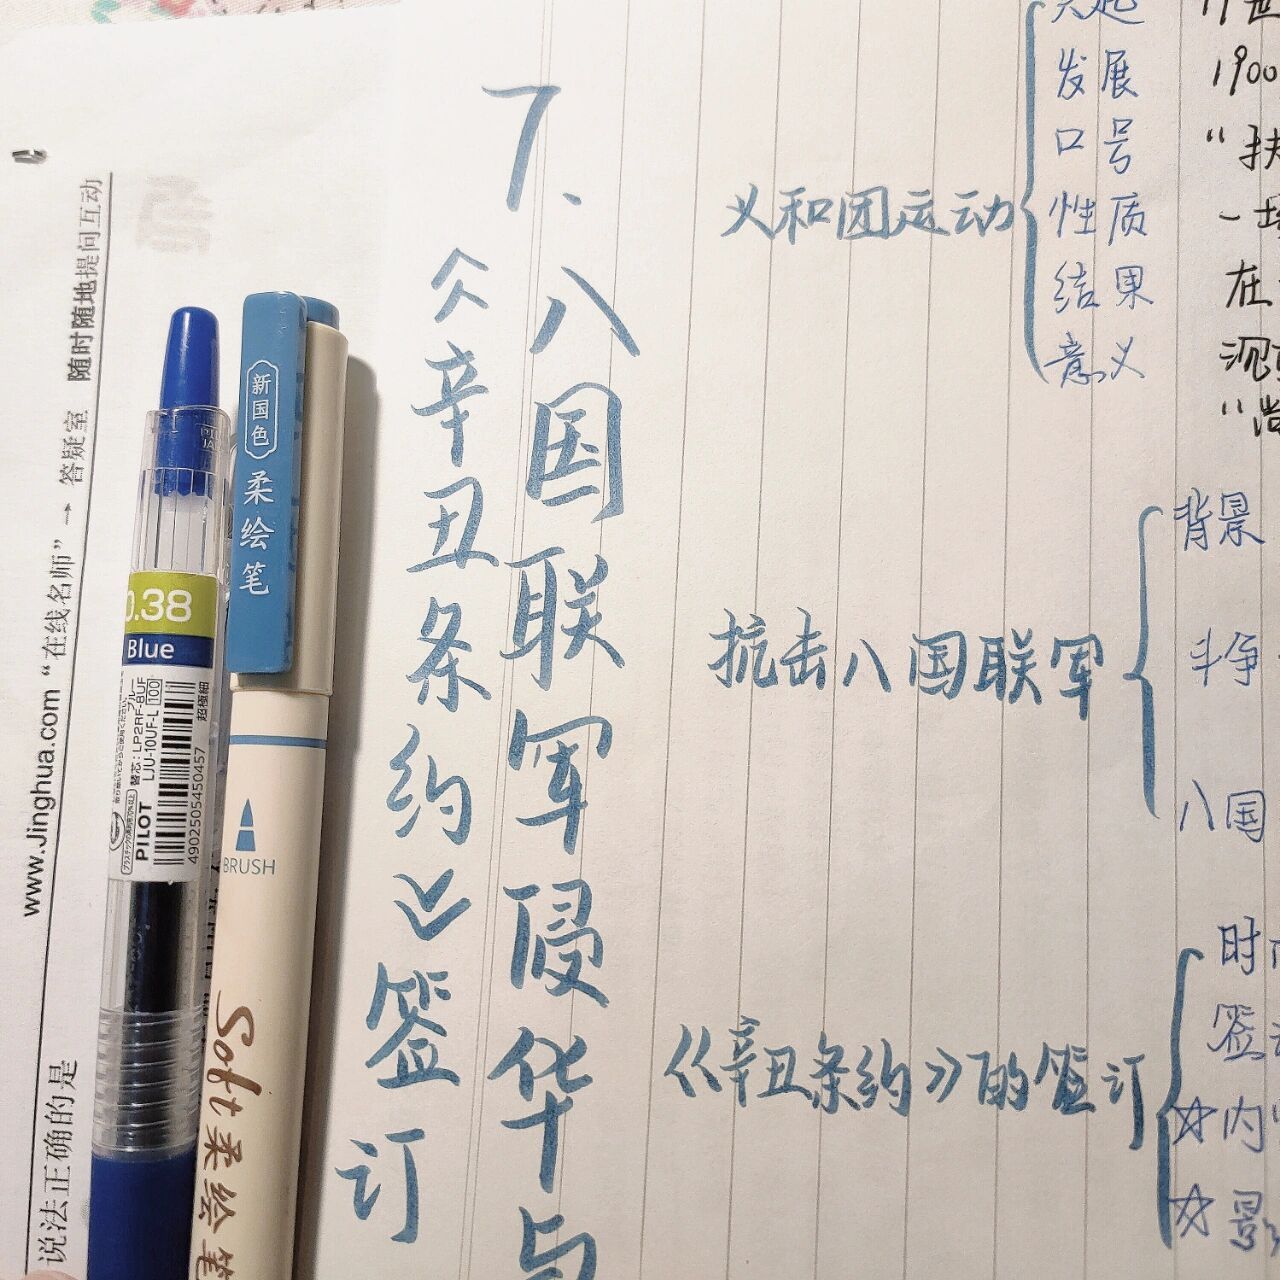 7、八国联军侵华与
《辛丑条约》签订
义和团运动
发展 1900
口号 “扶
性质 一场
结果 在
意义
抗击八国联军
背景
斗争
八国
《辛丑条约》的签订
时间
签
☆内
☆影
随时随地提问互动
www.Jinghua.com“在线名师”→答疑室
说法正确的是
0.38
Blue
超極細
ブルー 100
替芯:LP2RF-8UF
LJU-10UF-L
PILOT
4902505450457
新国色
柔绘笔
BRUSH
Soft柔绘笔